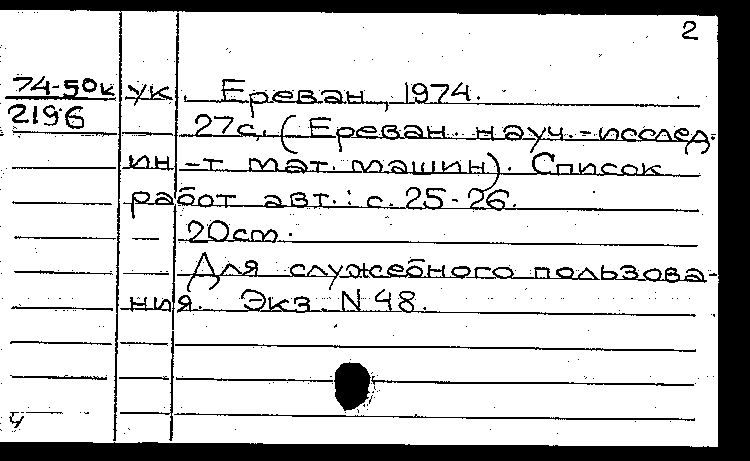 2
74-50к ук. Ереван, 1974.
2196 27с. (Ереван. науч.-исслед.
ин-т мат. машин). Список
работ авт.: с. 25-26.
20cm.
Для служебного пользова-
ния. Экз. N 48.
4